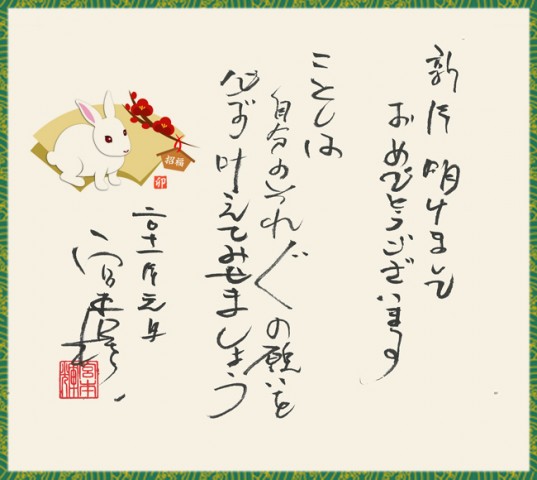 新年 明けまして
おめでとうございます
ことしは
自分のそれ〴〵の願いを
必ず叶えてみせましょう
二〇十一年元旦
宮本輝
宮本輝
招福
卯